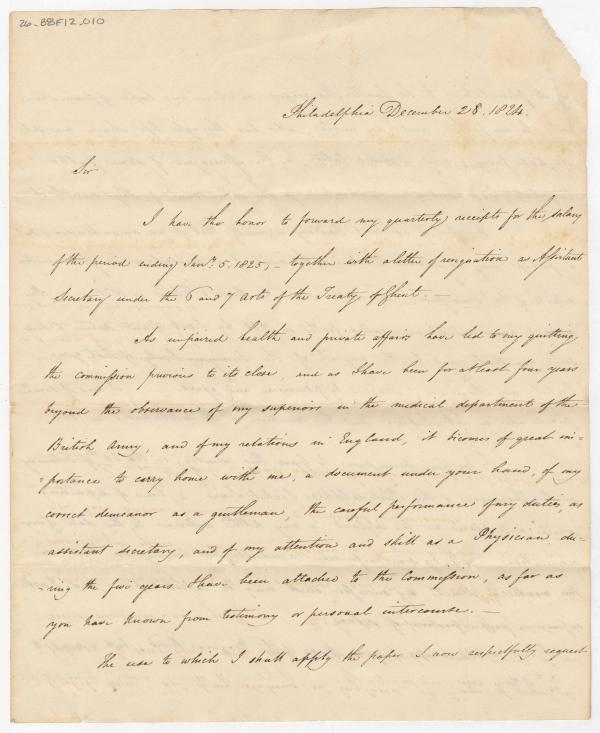 26-BBF12-010
Philadelphia December 28. 1824.
Sir
I have the honor to forward my quarterly receipts for the salary
of the period ending Jany. 5. 1825, – together with a letter of resignation as Assistant
Secretary under the 6 and 7 Arts of the Treaty of Ghent. –
As impaired health and private affairs have led to my quitting
the commission previous to its close, and as I have been for at least four years
beyond the observance of my superiors in the medical department of the
British Army, and of my relations in England, it becomes of great im-
-portance to carry home with me, a document under your hand, of my
correct demeanor as a gentleman, the careful performance of my duties, as
assistant secretary, and of my attention and skill as a Physician du-
-ring the five years I have been attached to the Commission, as far as
you have known from testimony or personal intercourse. –
The use to which I shall apply the paper I now respectfully request